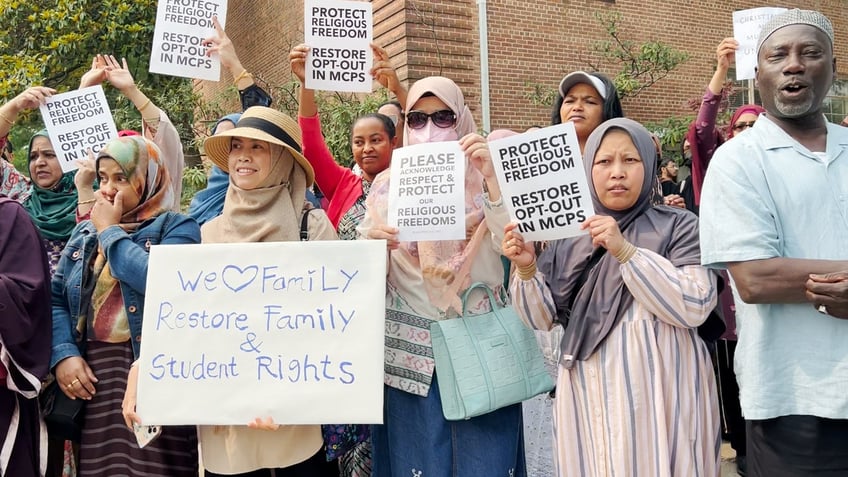 RELIGIOUS
FREEDOM
RESTORE
OPT-OUT
IN MCPS
PROTECT
RELIGIOUS
FREEDOM
RESTORE
OPT-OUT
IN MCPS
PROTECT
RELIGIOUS
FREEDOM
RESTORE
OPT-OUT
IN MCPS
PLEASE
ACKNOWLEDGE
RESPECT &
PROTECT
OUR
RELIGIOUS
FREEDOMS
PROTECT
RELIGIOUS
FREEDOM
RESTORE
OPT-OUT
IN MCPS
CHRISTIAN
We ♡ FamiLY
Restore Family
&
Student Rights